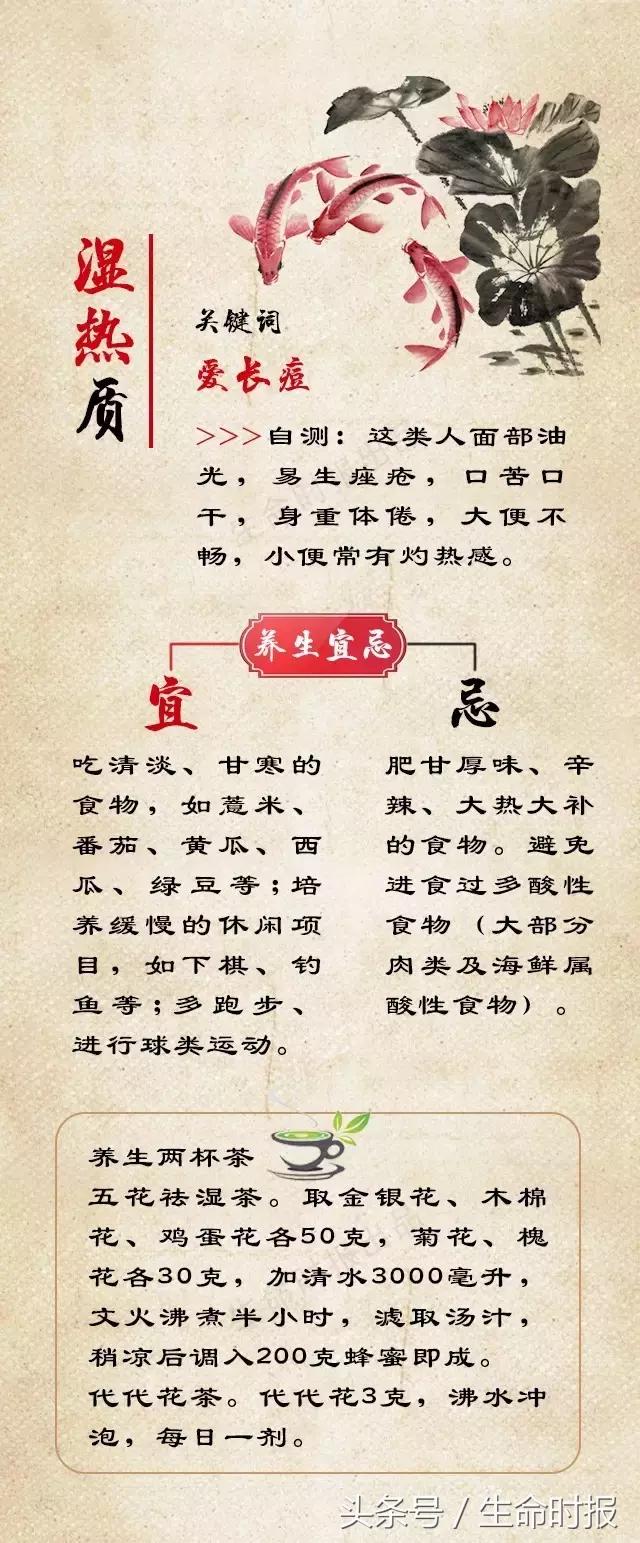 湿热质
关键词
爱长痘
>>>自测：这类人面部油
光，易生痤疮，口苦口
干，身重体倦，大便不
畅，小便常有灼热感。
养生宜忌
宜
吃清淡、甘寒的
食物，如薏米、
番茄、黄瓜、西
瓜、绿豆等；培
养缓慢的休闲项
目，如下棋、钓
鱼等；多跑步、
进行球类运动。
忌
肥甘厚味、辛
辣、大热大补
的食物。避免
进食过多酸性
食物（大部分
肉类及海鲜属
酸性食物）。
养生两杯茶
五花祛湿茶。取金银花、木棉
花、鸡蛋花各50克，菊花、槐
花各30克，加清水3000毫升，
文火沸煮半小时，滤取汤汁，
稍凉后调入200克蜂蜜即成。
代代花茶。代代花3克，沸水冲
泡，每日一剂。
头条号 / 生命时报